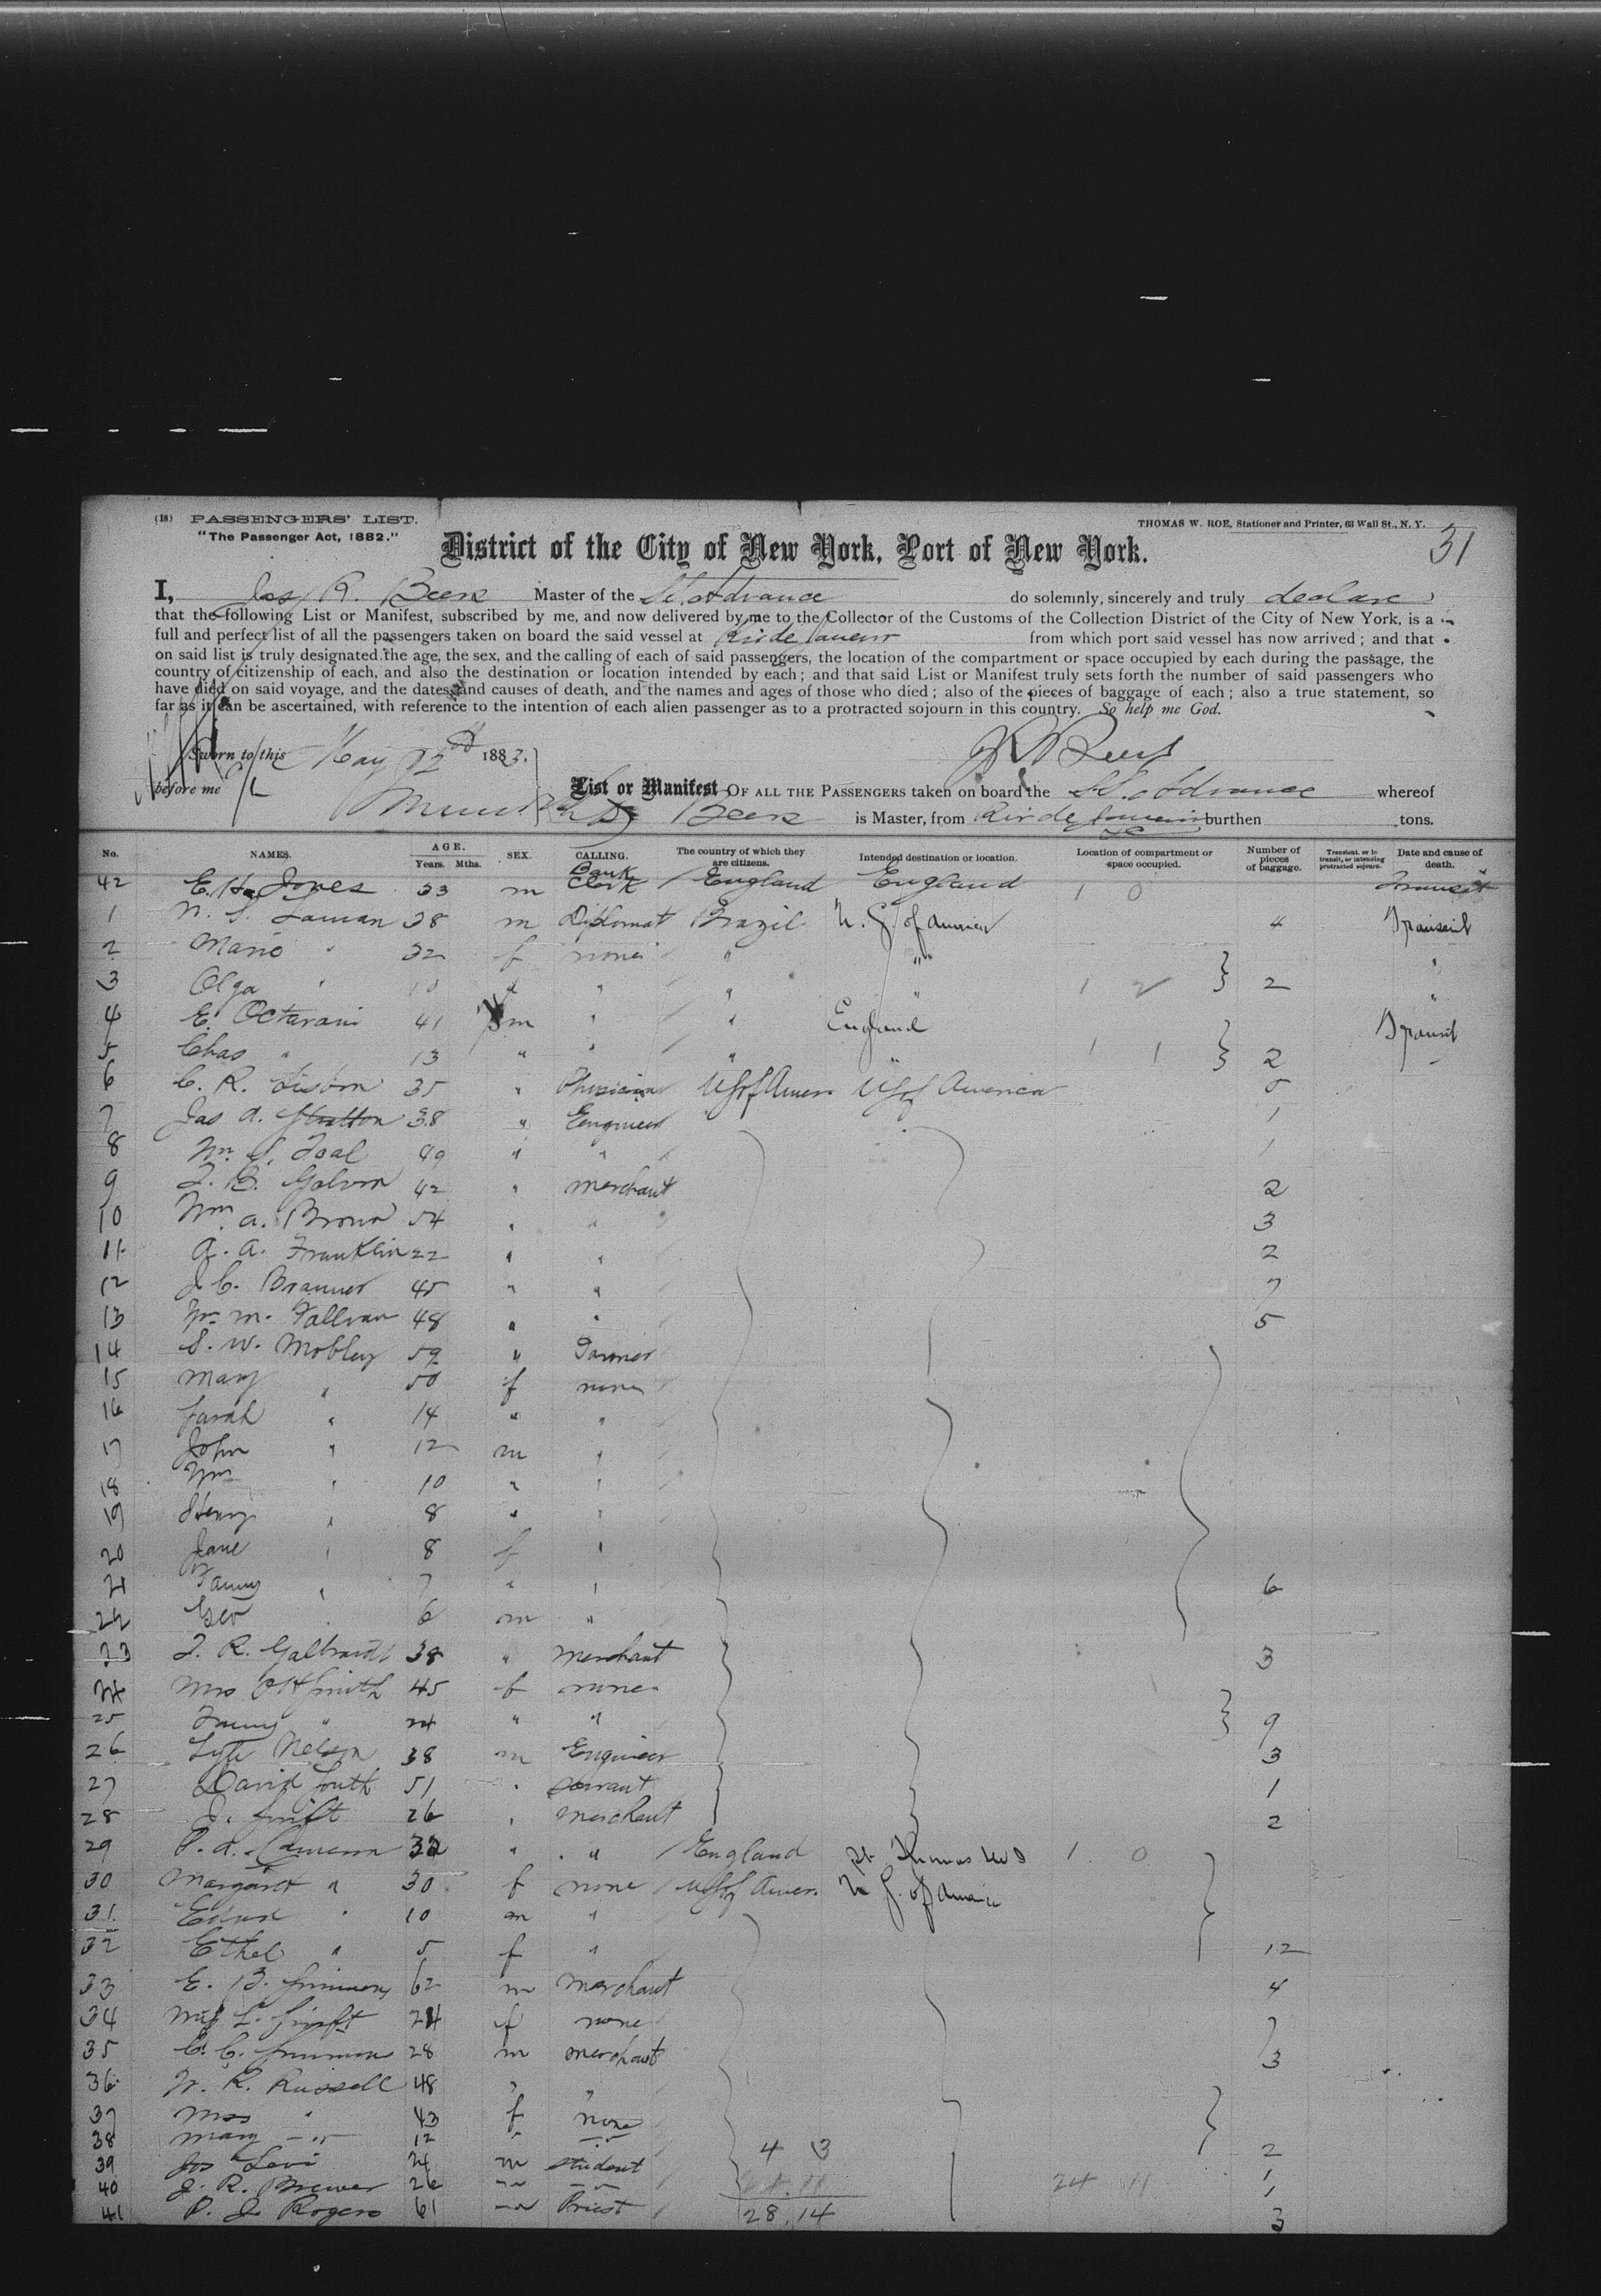 (18) PASSENGERS' LIST.
"The Passenger Act, 1882."
THOMAS W. ROE, Stationer and Printer, 63 Wall St., N. Y.
31
District of the City of New York, Port of New York.
I, Jas R. Beers Master of the St. Advance do solemnly, sincerely and truly declare
that the following List or Manifest, subscribed by me, and now delivered by me to the Collector of the Customs of the Collection District of the City of New York, is a
full and perfect list of all the passengers taken on board the said vessel at Rio de Janeiro from which port said vessel has now arrived; and that
on said list is truly designated the age, the sex, and the calling of each of said passengers, the location of the compartment or space occupied by each during the passage, the
country of citizenship of each, and also the destination or location intended by each; and that said List or Manifest truly sets forth the number of said passengers who
have died on said voyage, and the dates and causes of death, and the names and ages of those who died; also of the pieces of baggage of each; also a true statement, so
far as it can be ascertained, with reference to the intention of each alien passenger as to a protracted sojourn in this country. So help me God.
Sworn to this May 1883.
before me
J R Beers
List or Manifest OF ALL THE PASSENGERS taken on board the St. Advance whereof
Beers is Master, from Rio de Janeiro burthen tons.
No. NAMES. AGE. Years. Mths. SEX. CALLING. The country of which they are citizens. Intended destination or location. Location of compartment or space occupied. Number of pieces of baggage. Transient, or in transit, or intending protracted sojourn. Date and cause of death.
42 E. H. Jones 33 m Bank Clerk England England 1 0 Transit
1 38 m Diplomat Brazil U. S. of America 4 Transit
2 Marie " 32 f none " " "
3 Olga " 10 f " " " 1 2 2 "
4 E. Octavani 41 m " " England Transit
5 Chas " 13 " " " " 1 1 2
6 C. R. Lisbon 35 " Physician US of Amer. US of America 5
7 Jas A. Stratton 38 " Engineer 1
8 Wm. S. Toal 49 " " 1
9 T. B. Galvin 42 " merchant 2
10 Wm. A. Brown 54 " " 3
11 A. A. Franklin 22 " " 2
12 J. C. Branner 45 " " 7
13 Wm. M. 48 " " 5
14 S. W. Mobley 59 " Farmer
15 Mary " 50 f none
16 Sarah " 14 " "
17 John " 12 m "
18 Wm " 10 " "
19 Henry " 8 " "
20 Jane " 8 f "
21 Fanny " 7 " " 6
22 Geo " 6 m "
23 T. R. Galbraith 38 " merchant 3
24 Mrs Smith 45 f none
25 Fanny " 24 " " 9
26 Lyte Nelson 38 m Engineer 3
27 David South 51 " servant 1
28 J. Swift 26 " merchant 2
29 P. A. Cameron 32 " " England St. Thomas W I 1 0
30 Margaret " 30 f none US of Amer. U S. of America
31 " 10 m "
32 Ethel " 5 f " 12
33 E. B. Simmons 62 m Merchant 4
34 L. Swift 24 f none 7
35 C. C. Simmons 28 m merchant 3
36 W. R. Russell 48 " "
37 Mrs " 43 f none
38 Mary " 12 " " 4 3 2
39 Jos Levi 24 m student 1
40 J. R. Brewer 26 " " 24 11 1
41 P. J. Rogers 61 " Priest 28.14 3